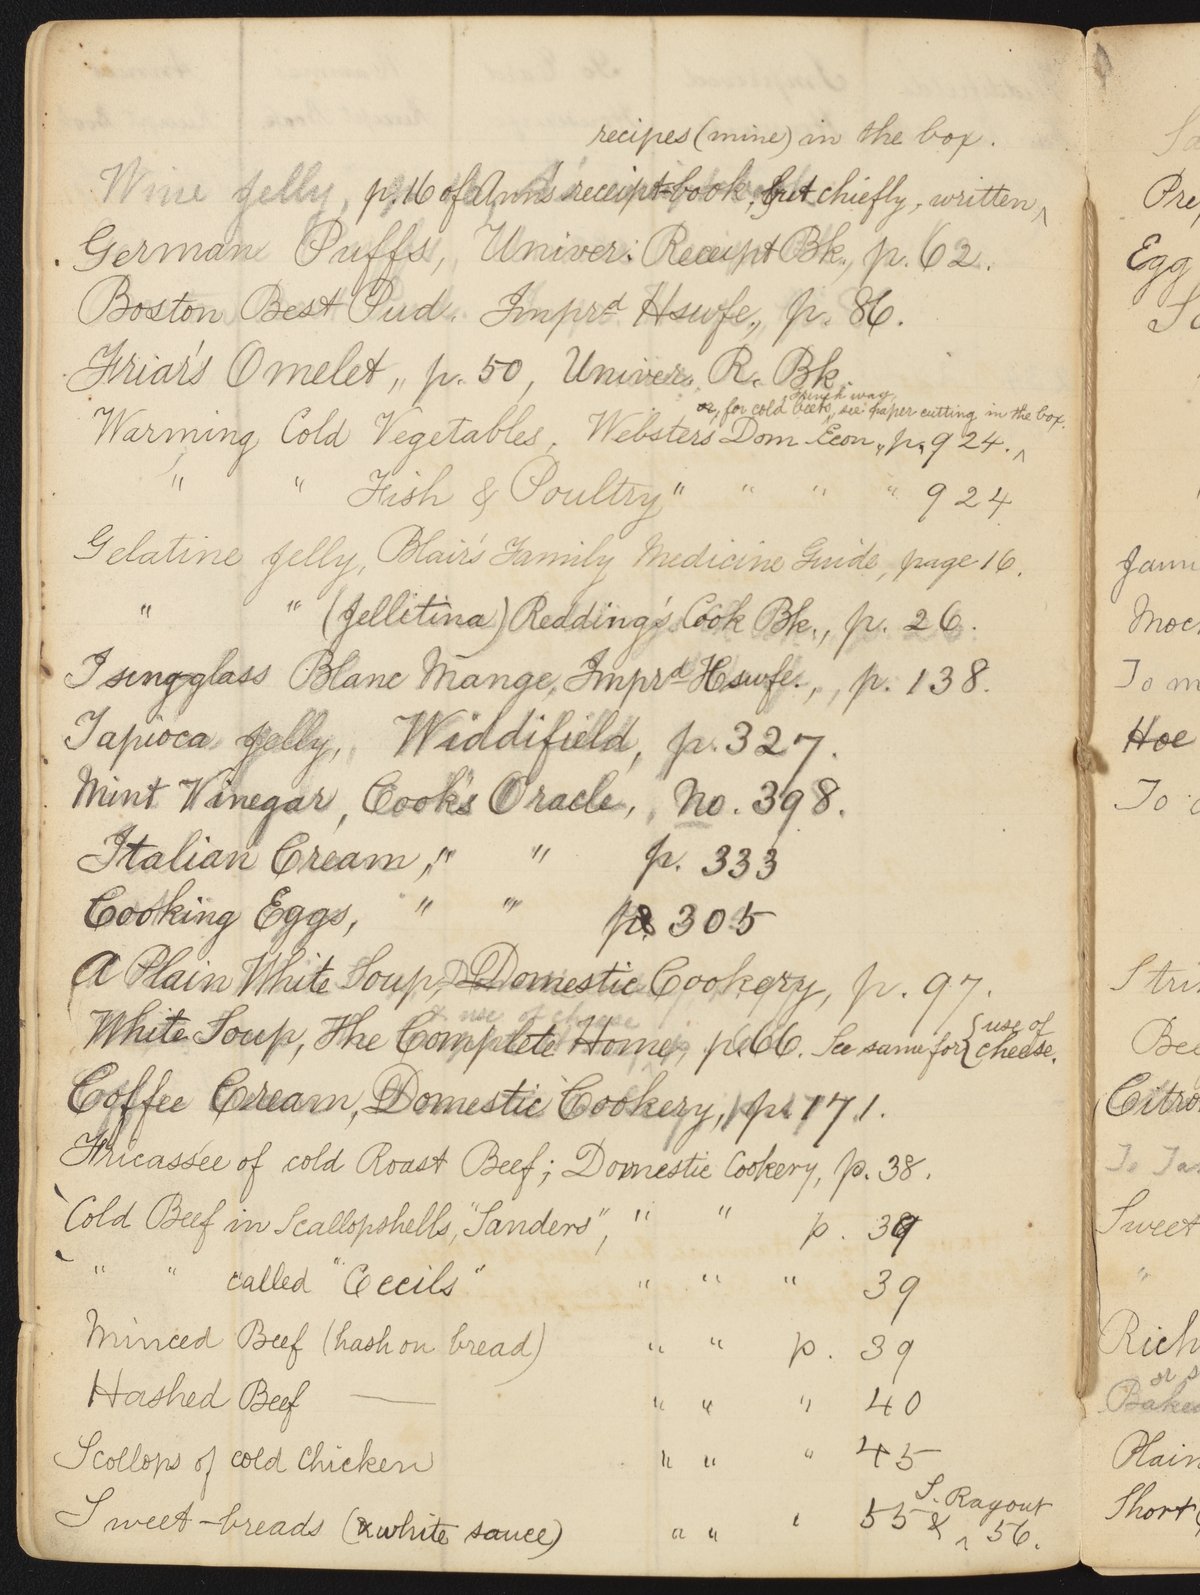 recipes (mine) in the box.
Wine Jelly, p. 16 of Ann's receipt-book, but chiefly, written ^
German Puffs, Univer: Receipt Bk., p. 62.
Boston Best Pud. Imprd Hswfe., p. 86.
Friar's Omelet, p. 50, Univer. R. Bk.
French way,
or, for cold beets, see paper cutting in the box.
Warming Cold Vegetables, Webster's Dom Econ., p. 924. ^
" " Fish & Poultry " " " " 924
Gelatine Jelly, Blair's Family Medicine Guide, page 16.
" " (Jellitina) Redding's Cook Bk., p. 26.
Isingglass Blanc Mange, Imprd Hswfe., p. 138.
Tapioca Jelly, Widdifield, p. 327.
Mint Vinegar, Cook's Oracle, No. 398.
Italian Cream, " " p. 333
Cooking Eggs, " " p. 305
A Plain White Soup, Domestic Cookery, p. 97.
& use of cheese
White Soup, The Complete Home, p. 66. See same for { use of cheese.
Coffee Cream, Domestic Cookery, p. 171.
Fricassée of cold Roast Beef; Domestic Cookery, p. 38.
Cold Beef in Scallopshells, "Sanders", " " p. 39
" " called "Cecils" " " " 39
Minced Beef (hash on bread) " " p. 39
Hashed Beef — " " " 40
Scollops of cold Chicken " " " 45
S. Ragout
Sweet-breads (& white sauce) " " " 55 & ^ 56.
Pre
Egg
Mock
To m
Hoe
To
Strin
Bee
Citro
To
Sweet
"
Rich
or s
Baked
Plain
Short